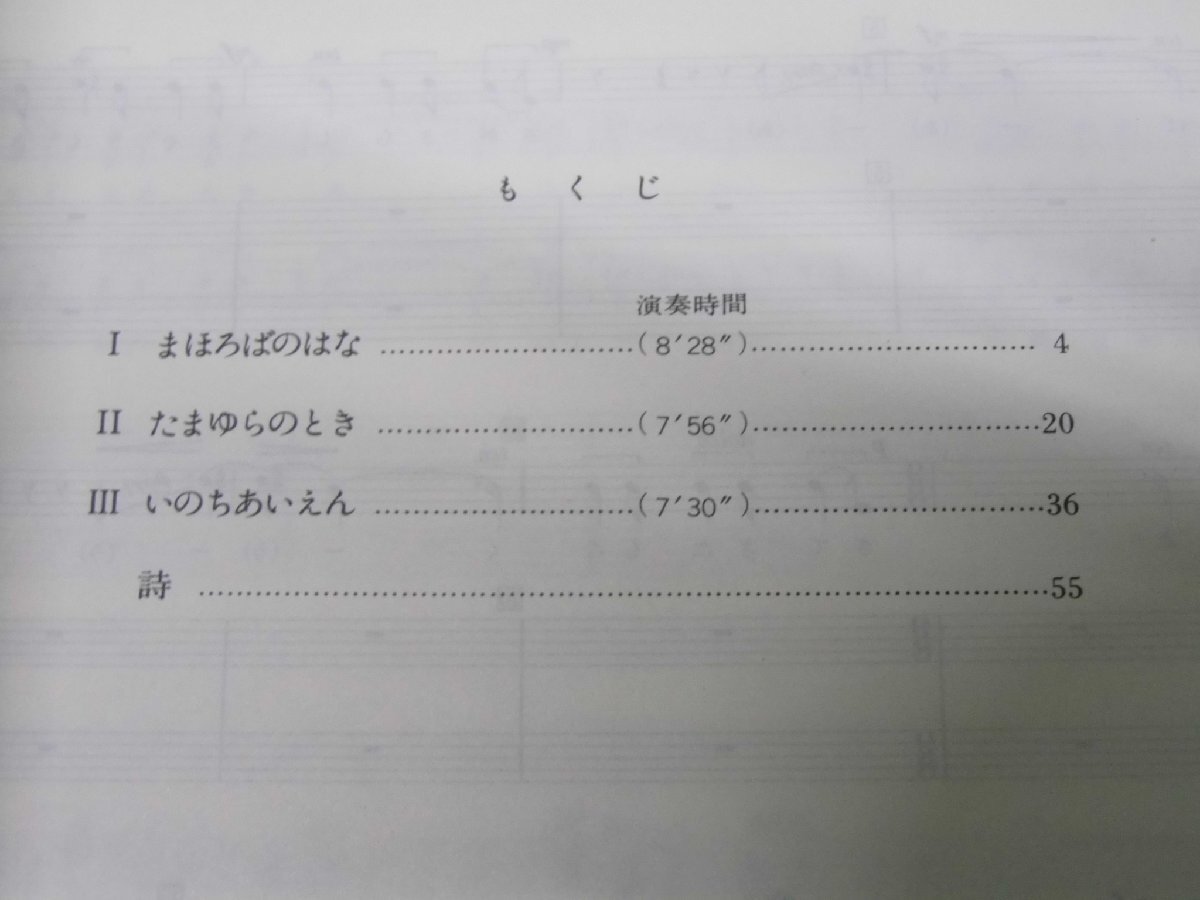 もくじ
演奏時間
I まほろばのはな ……………………(8′28″)……………………… 4
II たまゆらのとき ……………………(7′56″)………………………20
III いのちあいえん ……………………(7′30″)………………………36
詩 ……………………………………………………………………55